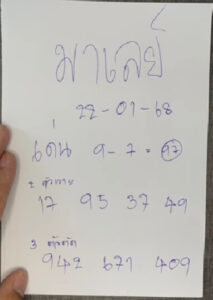 มาเลย์
22-01-68
เด่น 9-7 = 97
2 ตัวตรง
17 95 37 49
3 ตัวตรง
942 671 409